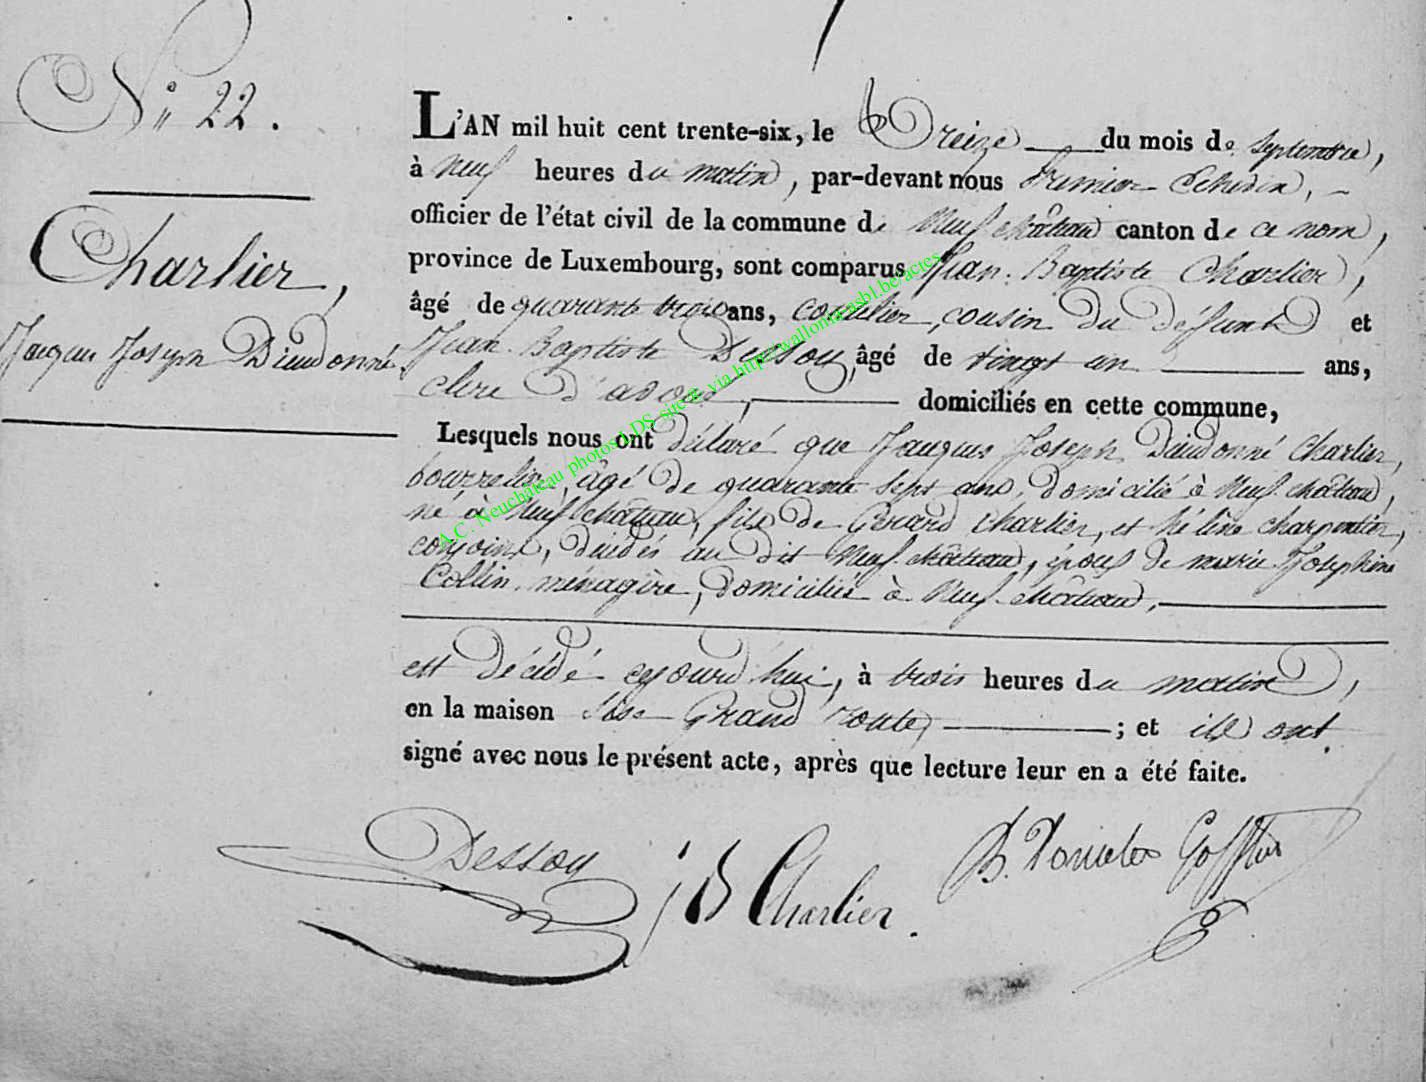 N° 22.
Charlier,
Jacques Joseph Dieudonné.
L'AN mil huit cent trente-six, le Treize du mois de Septembre,
à neuf heures du matin, par-devant nous Premier Echevin,
officier de l'état civil de la commune de Neufchâteau canton de ce nom,
province de Luxembourg, sont comparus Jean Baptiste Charlier,
âgé de quarante trois ans, cousin du défunt et
Jean Baptiste Dessoy, âgé de vingt un ans,
clerc d'avoué, domiciliés en cette commune,
Lesquels nous ont déclaré que Jacques Joseph Dieudonné Charlier,
bourrelier, âgé de quarante sept ans, domicilié à Neufchâteau,
né à Neufchâteau, fils de Gérard Charlier, et hélène charpentier,
conjoints, décédés au dit Neufchâteau, époux de marie Josephine
Collin, ménagère, domiciliée à Neufchâteau,
est décédé cejourd'hui, à trois heures du matin,
en la maison sise Grand route, ; et ils ont
signé avec nous le présent acte, après que lecture leur en a été faite.
Dessoy
J B Charlier.
A.C. Neuchâteau photos LDS site & via http://wallonia-asbl.be/actes